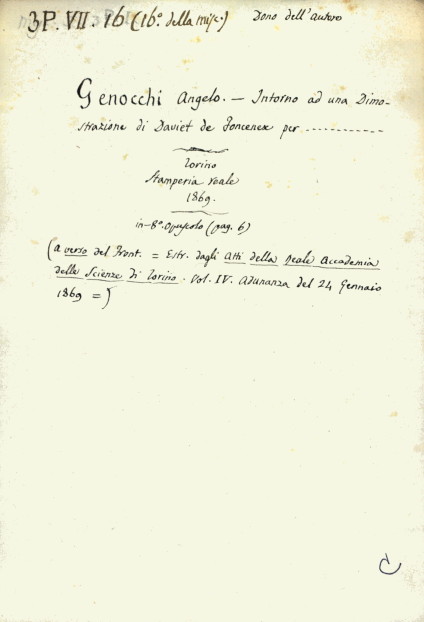 3P. VII. 16 (16º della misc.) Dono dell'autore
Genocchi Angelo. — Intorno ad una Dimo-
strazione di Daviet de Foncenex per ............
Torino
Stamperia reale
1869.
in-8º. Opuscolo (pag. 6)
(a verso del Front. = Estr. dagli Atti della Reale Accademia
delle Scienze di Torino. Vol. IV. Adunanza del 24 Gennaio
1869 =)